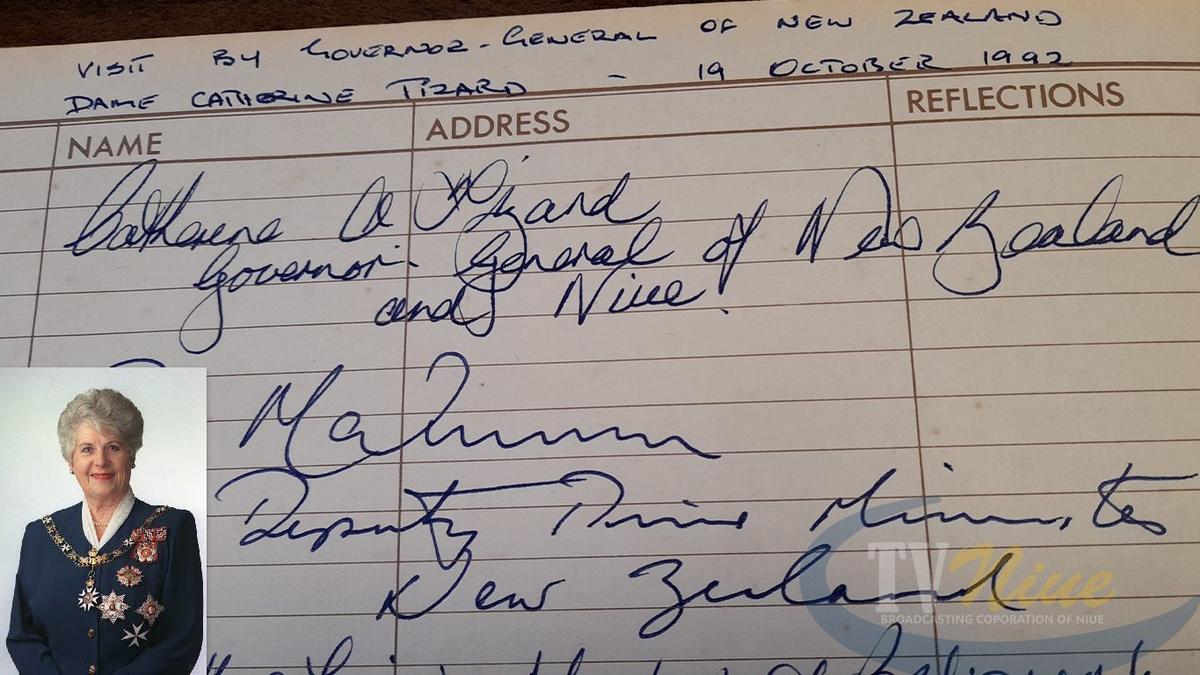 VISIT BY GOVERNOR-GENERAL OF NEW ZEALAND
DAME CATHERINE TIZARD - 19 OCTOBER 1992
NAME ADDRESS REFLECTIONS
Catherine A Tizard
Governor-General of New Zealand
and Niue!
Deputy Prime Minister
New Zealand
TV Niue
BROADCASTING COPORATION OF NIUE